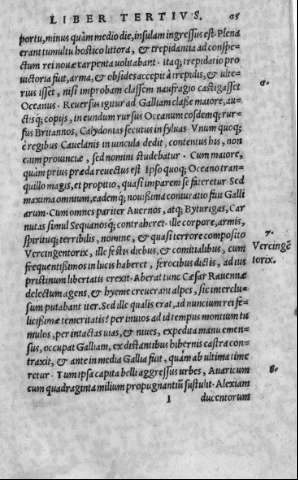 LIBER TERTIVS.
portu, minus quàm medio die, insulam ingressus est. Plena
erant tumultu hostico littora, & trepidantia ad conspe-
ctum rei nouæ carpenta uolitabant. itaq; trepidatio pro
uictoria fuit, arma, & obsides accepit à trepidis, & ulte-
rius isset, nisi improbam classem naufragio castigasset
Oceanus. Reuersus igitur ad Galliam classe maiore, au-
ctisq; copijs, in eundum rursus Oceanum eosdemq; rur-
sus Britannos, Calydonias secutus in syluas. Vnum quoq;
è regibus Cauelanis in uincula dedit, contentus his, non
enim prouinciæ, sed nomini studebatur. Cum maiore,
quàm prius præda reuectus est. Ipso quoq; Oceano tran-
quillo magis, et propitio, quasi imparem se fateretur. Sed
maxima omnium, eademq; nouissima coniuratio fuit Galli
arum. Cum omnes pariter Auernos, atq; Byturigas, Car
nutas simul Sequanosq; contraheret. ille corpore, armis,
spirituq; terribilis, nomine, & quasi terrore composito
Vercingentorix, ille festis diebus, & comitialibus, cum
frequentissimos in lucis haberet, ferocibus dictis, ad ius
pristinum libertatis erexit. Aberat tunc Cæsar Rauennæ
delectum agens, & hyeme creuerant alpes, sic interclu-
sum putabant iter. Sed ille qualis erat, ad nuncium rei fe-
licissimæ temeritatis! per inuios ad id tempus montium tu
mulos, per intactas uias, & niues, expedita manu emen-
sus, occupat Galliam, ex distantibus hibernis castra con-
traxit, & ante in media Gallia fuit, quàm ab ultima time
retur. Tum ipsa capita belli aggressus urbes, Auaricum
cum quadraginta milium propugnantiũ sustulit. Alexiam
I ducentorum
7.
Vercingẽ
torix.